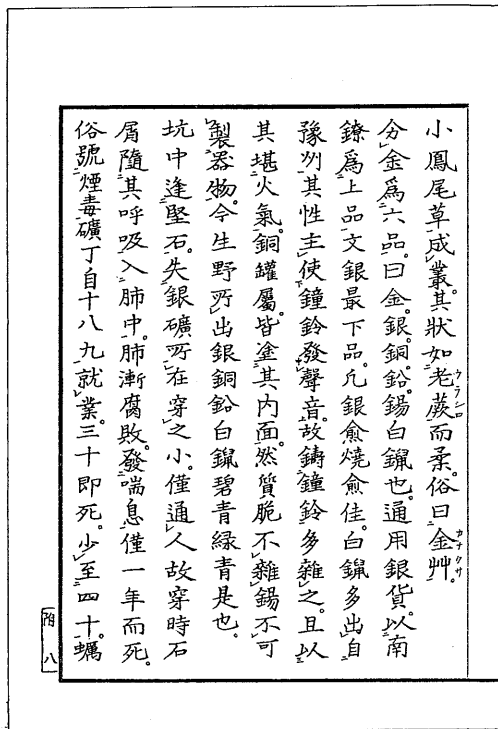 小鳳尾草成叢。其狀如老蕨而柔。俗曰金艸。
ウラシロ
カナクサ
分金爲六品。曰金。銀。銅。鉛。錫白鑞也。通用銀貨。以南
鐐爲上品。文銀最下品。凡銀愈燒愈佳。白鑞多出自
豫州其性主使鐘鈴發聲音。故鑄鐘鈴多雜之。且以
其堪火氣。銅罐屬。皆塗其内面。然質脆不雜錫不可
製器物。今生野所出銀銅鉛白鑞碧青緑青是也。
坑中逢堅石。失銀礦所在穿之小。僅通人故穿時石
屑隨其呼吸入肺中。肺漸腐敗。發喘息僅一年而死。
俗號煙毒礦丁自十八九就業。三十即死。少至四十。蠣
八